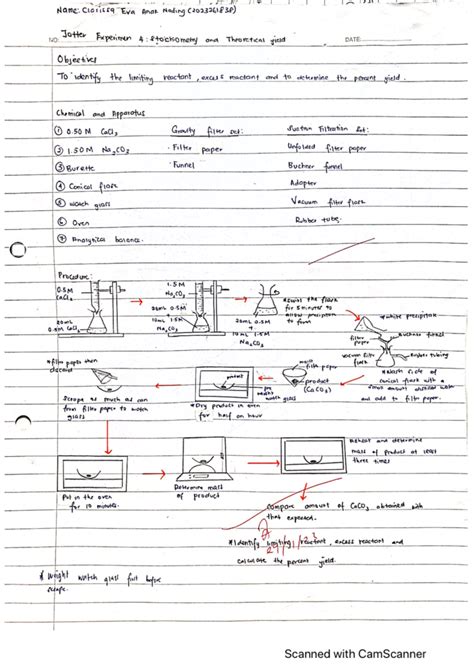 Name: Clarissa Eva Anak Nading (2023261838)
Jotter Experiment 4: Stoichiometry and Theoretical yield
NO: DATE:
Objectives
To identify the limiting reactant, excess reactant and to determine the percent yield.
Chemical and Apparatus
① 0.50 M CaCl₂ Gravity filter set: Suction Filtration Set:
② 1.50 M Na₂CO₃ · Filter paper Unfolded filter paper
③ Burette · Funnel Buchner funnel
④ Conical flask Adapter
⑤ Watch glass Vacuum filter flask
⑥ Oven Rubber tube.
⑦ Analytical balance.
Procedure:
0.5M CaCl₂
20mL 0.5M CaCl₂
1.5M Na₂CO₃
20mL 0.5M
10mL 1.5M Na₂CO₃
20mL 0.5M + 10mL 1.5M Na₂CO₃
*Swirl the flask for 5 minutes to allow precipitate to form
white precipitate
filter paper
Buchner funnel
vacuum filter flask
Rubber tubing
*Wash side of conical flask with a small amount distilled water and add to filter paper.
filter paper
product (CaCO₃)
watch glass
*Dry product in oven for half an hour
*filter paper then discard
Scrape as much as can from filter paper to watch glass
Put in the oven for 10 minutes.
Determine mass of product
Reheat and determine mass of product at least three times
Compare amount of CaCO₃ obtained with that expected.
*Identify limiting reactant, excess reactant and calculate the percent yield.
* Weight watch glass first before scrape.
Scanned with CamScanner